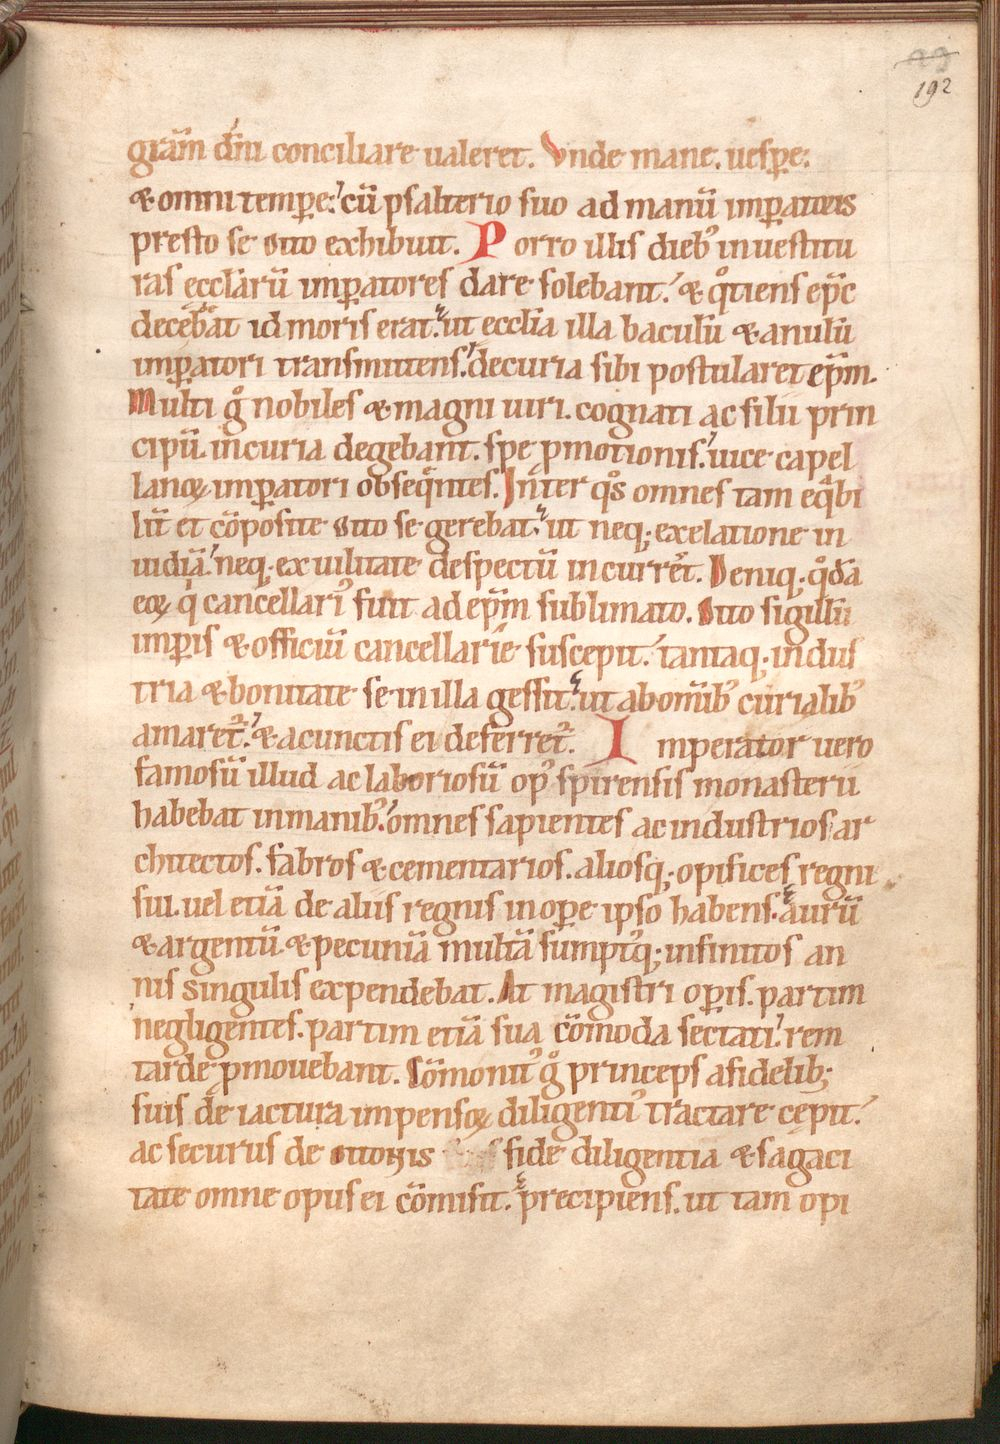 192
gr̄am dn̄i conciliare ualeret. Vnde mane. uesꝑe.
& omni temꝑe. cū psalterio suo ad manū imꝑatoris
presto se otto exhibuit. Porro illis dieb᷒ inuestitu
ras eccl̄arū imꝑatores dare solebant. & qͦtiens ep̄c
decebat id moris erat. ut eccl̄ia illa baculū & anulū
imꝑatori transmittens. decuria sibi postularet ep̄m.
Multi gͦ nobiles & magni uiri. cognati ac filii prin
cipū. in curia degebant. spe ꝓmotionis. uice capel
lanoꝝ imꝑatori obseqͥntes. Int̄er qͦs omnes tam eqͣbi
lit̄ et cōposite otto se gerebat. ut neq; ex elatione in
uidiā. neq; ex uilitate despectū incurrer̄t. Deniq; qͦdā
eoꝝ qͥ cancellari᷒ fuit ad ep̄m sublimato. Otto sigillū
imꝑis & officiū cancellarie suscepit. tantaq; indus
tria & bonitate se in illa gessit. ut ab om̄ib᷒ curialib᷒
amaret᷑. & a cunctis ei deferret᷑. Imperator uero
famosū illud ac laboriosū op᷒ spirensis monasterii
habebat in manib᷒. omnes sapientes ac industrios ar
chitectos. fabros & cementarios. aliosq; opifices regni
sui. uel etiā de aliis regnis in oꝑe ipso habens. aurū
& argentū & pecuniā multā sumpt᷒q; infinitos an
nis singulis expendebat. At magistri oꝑis. partim
negligentes. partim etiā sua cōmoda sectati. rem
tarde ꝓmouebant. Cōmonit᷒ gͦ princeps a fidelib;
suis de iactura impensoꝝ diligenti᷒ tractare cepit.
ac securus de ottonis fide diligentia & sagaci
tate omne opus ei cōmisit. precipiens. ut tam opi